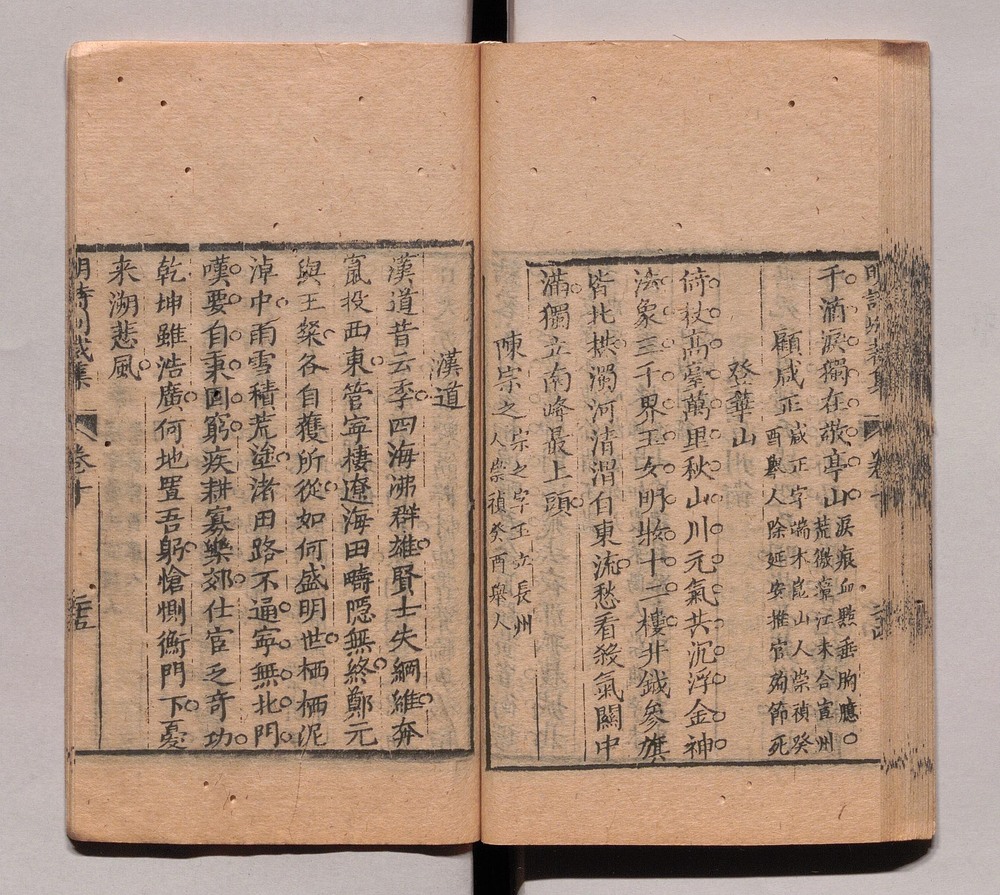 明詩別裁集 卷十
千滴淚獨在敬亭山淚痕血點垂胸臆
荒徼蘂江末合宣州
顧咸正咸正字端木崑山人崇禎癸
酉舉人除延安推官殉節死
登華山
倚杖高臺萬里秋山川元氣共沉浮金神
法象三千界玉女明妝十二樓井鉞參旗
皆北拱濁河清渭自東流愁看殺氣關中
滿獨立南峰最上頭
陳宗之宗之字玉立長州
人崇禎癸酉舉人
漢道
漢道昔云季四海沸群雄賢士失綱維奔
竄投西東管寧棲遼海田疇隱無終鄭元
與王粲各自獲所從如何盛明世栖栖泥
淖中雨雪積荒塗渚田路不逼寧無北門
嘆要自秉固窮疾耕寡樂郊仕宦乏奇功
乾坤雖浩廣何地置吾躬愴惻衡門下憂
来溯悲風
明詩別裁集 卷十 二十五